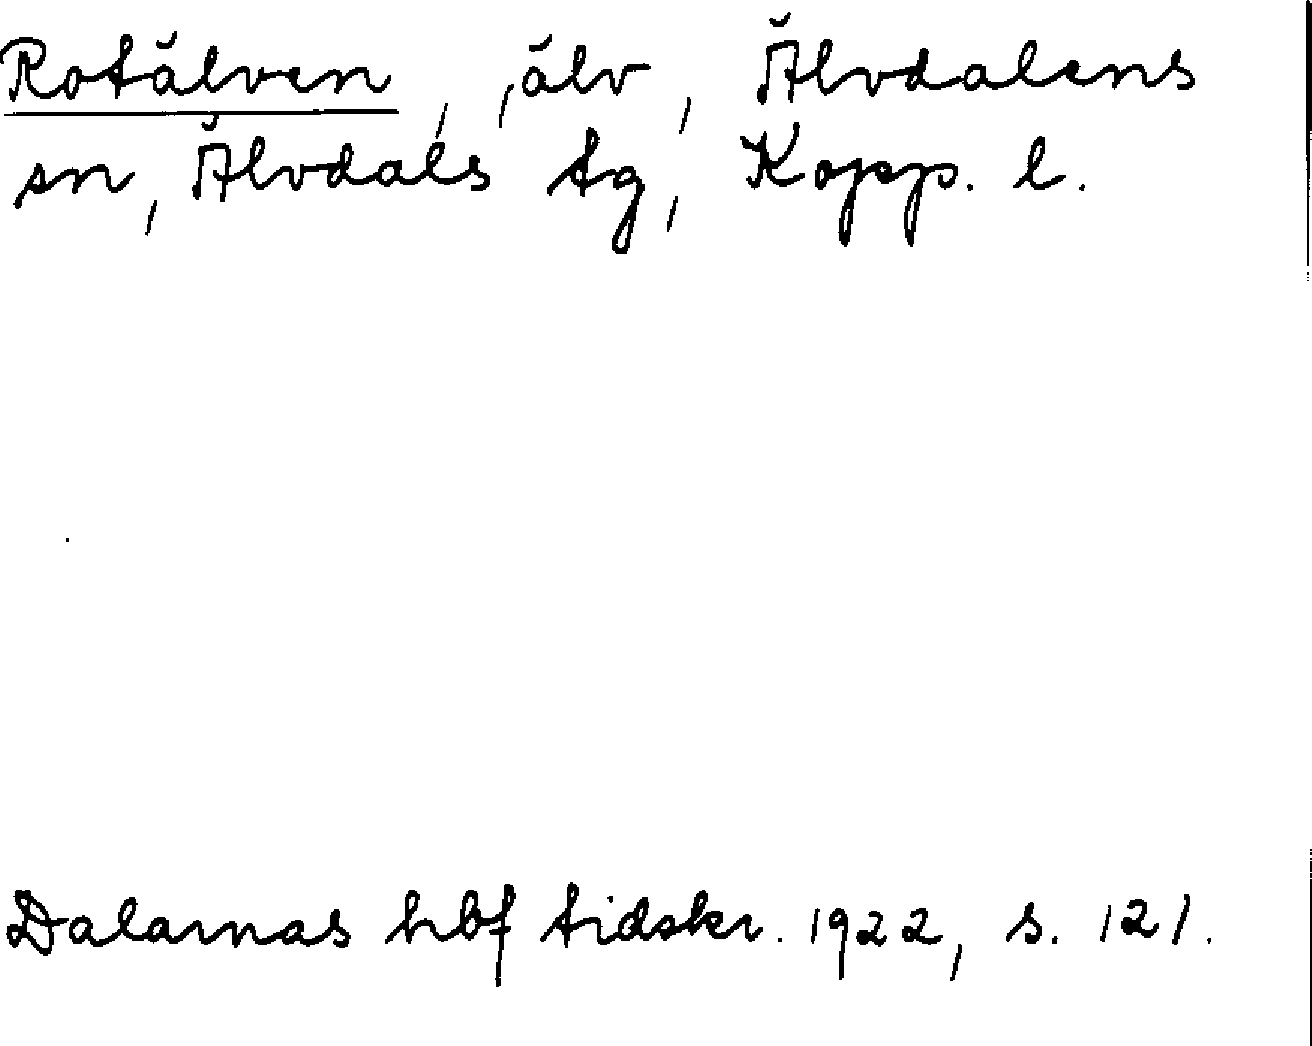 Rotälven, älv, Älvdalens
sn, Älvdals tg, Kopp. l.
Dalarnas hbf tidskr. 1922, s. 121.